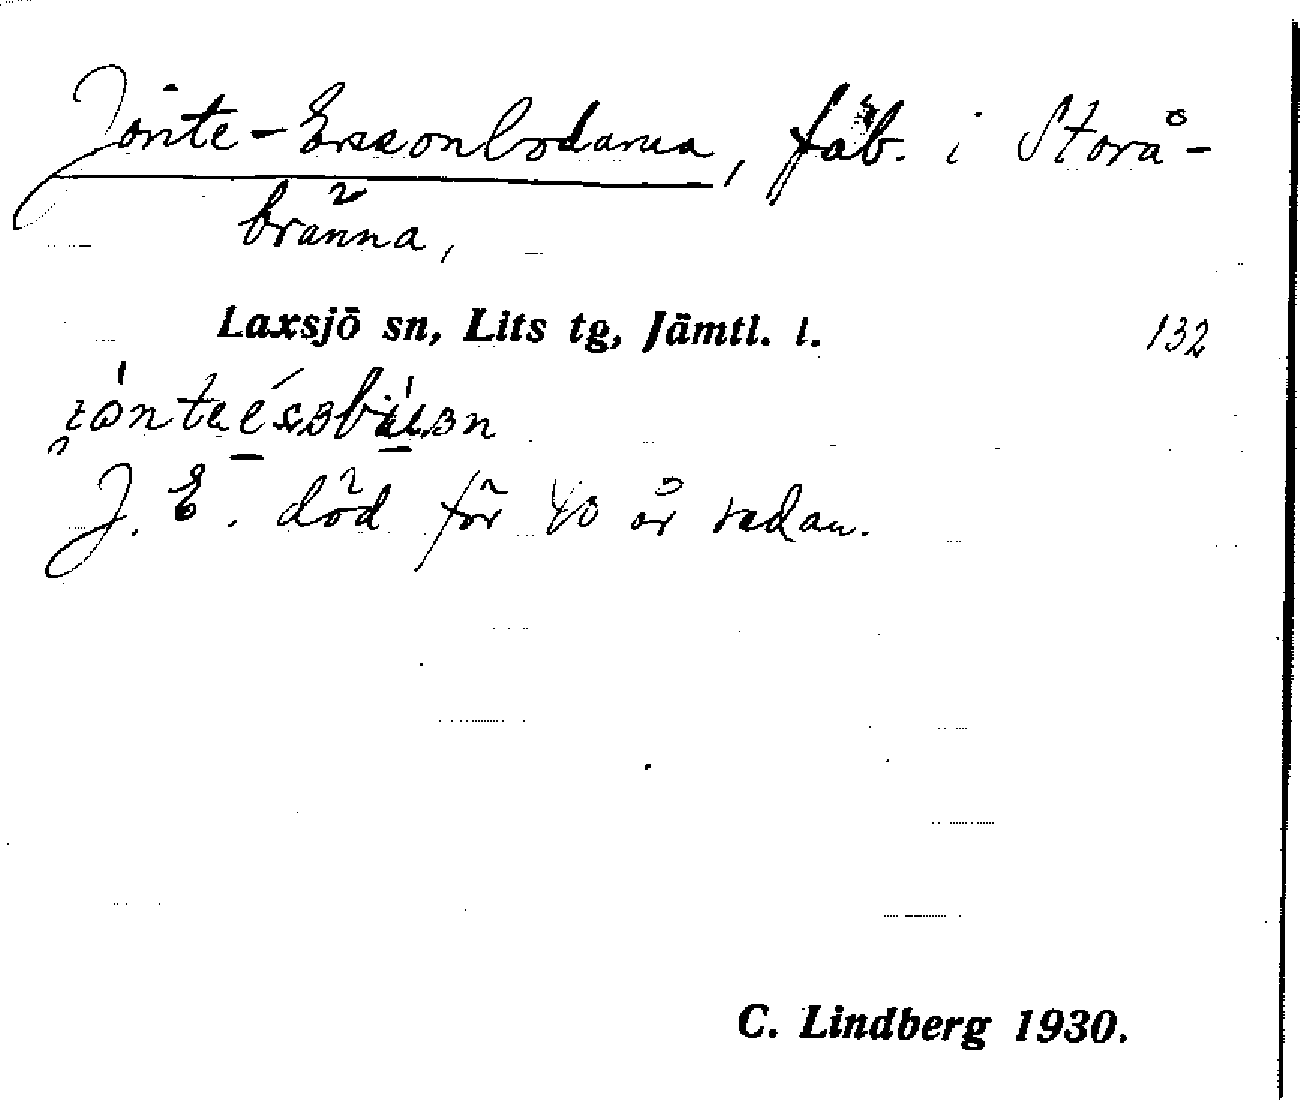 Jonte-Erssonbodarna, fäb. i Storå-
bränna,
Laxsjö sn, Lits tg, Jämtl. l.
132
J. E. död för 40 år sedan.
C. Lindberg 1930.